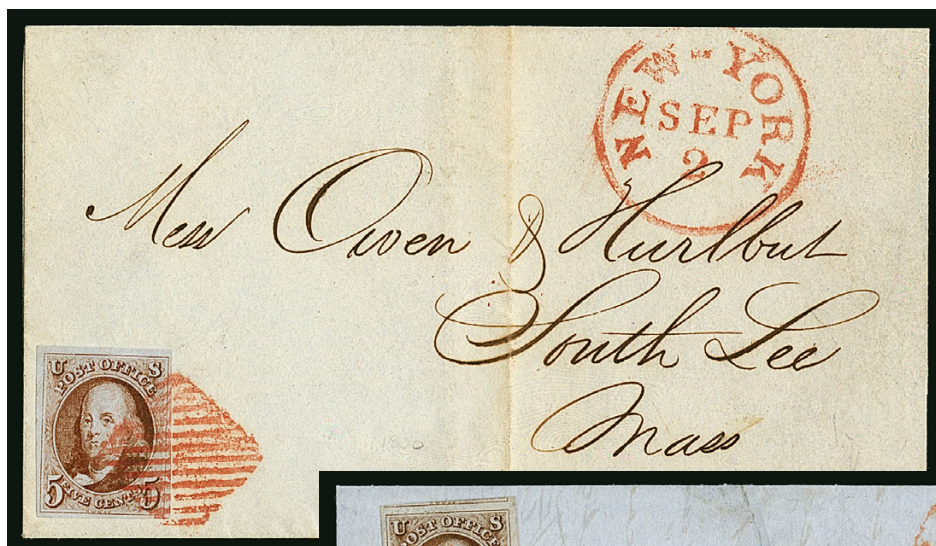 NEW-YORK
SEP
2
Mess Owen & Hurlbut
South Lee
Mass
U S
POST OFFICE
FIVE CENTS
5 5
U S
POST OFFICE